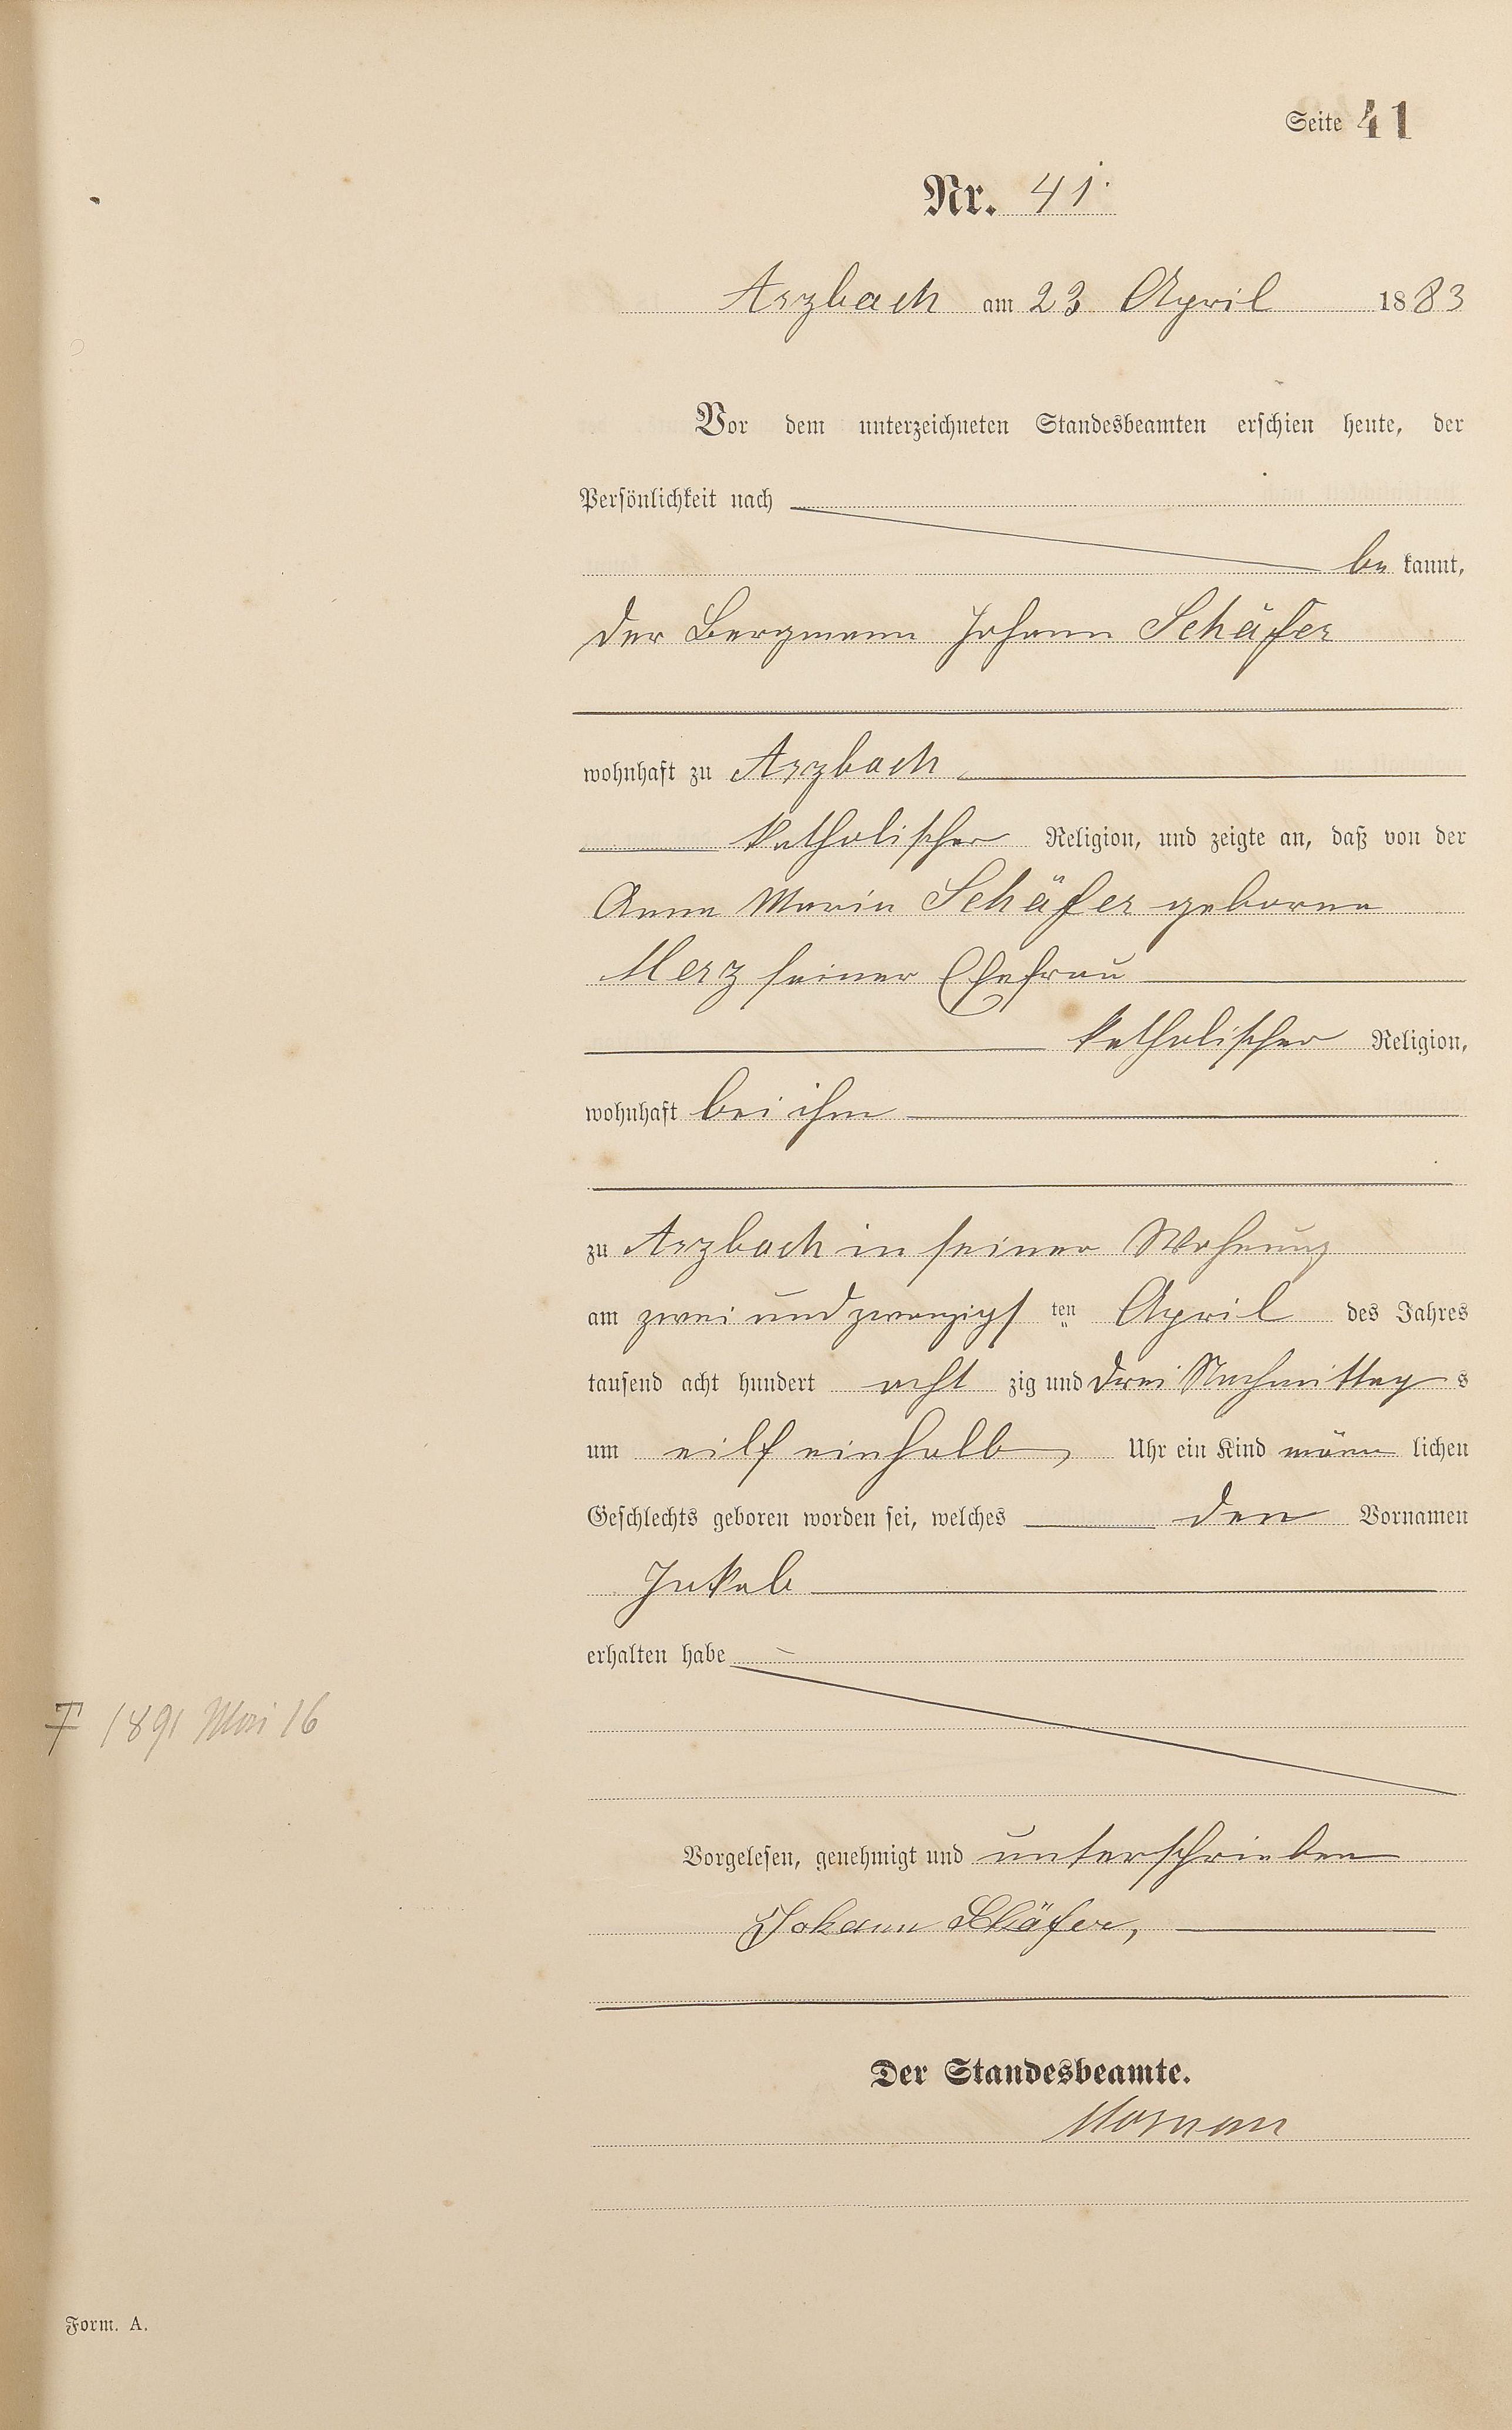 Seite 41
Nr. 41.
Arzbach am 23 April 1883
Vor dem unterzeichneten Standesbeamten erschien heute, der
Persönlichkeit nach
be kannt,
der Bergmann Johann Schäfer
wohnhaft zu Arzbach
katholischer Religion, und zeigte an, daß von der
Anna Maria Schäfer geborne
Merz seiner Ehefrau
katholischer Religion,
wohnhaft bei ihm
zu Arzbach in seiner Wohnung
am zwei und zwanzigs ten April des Jahres
tausend acht hundert acht zig und drei Nachmittag s
um eilf einhalb Uhr ein Kind männ lichen
Geschlechts geboren worden sei, welches den Vornamen
Jakob
erhalten habe
† 1891 Mai 16
Vorgelesen, genehmigt und unterschrieben
Johann Schäfer,
Der Standesbeamte.
Form. A.